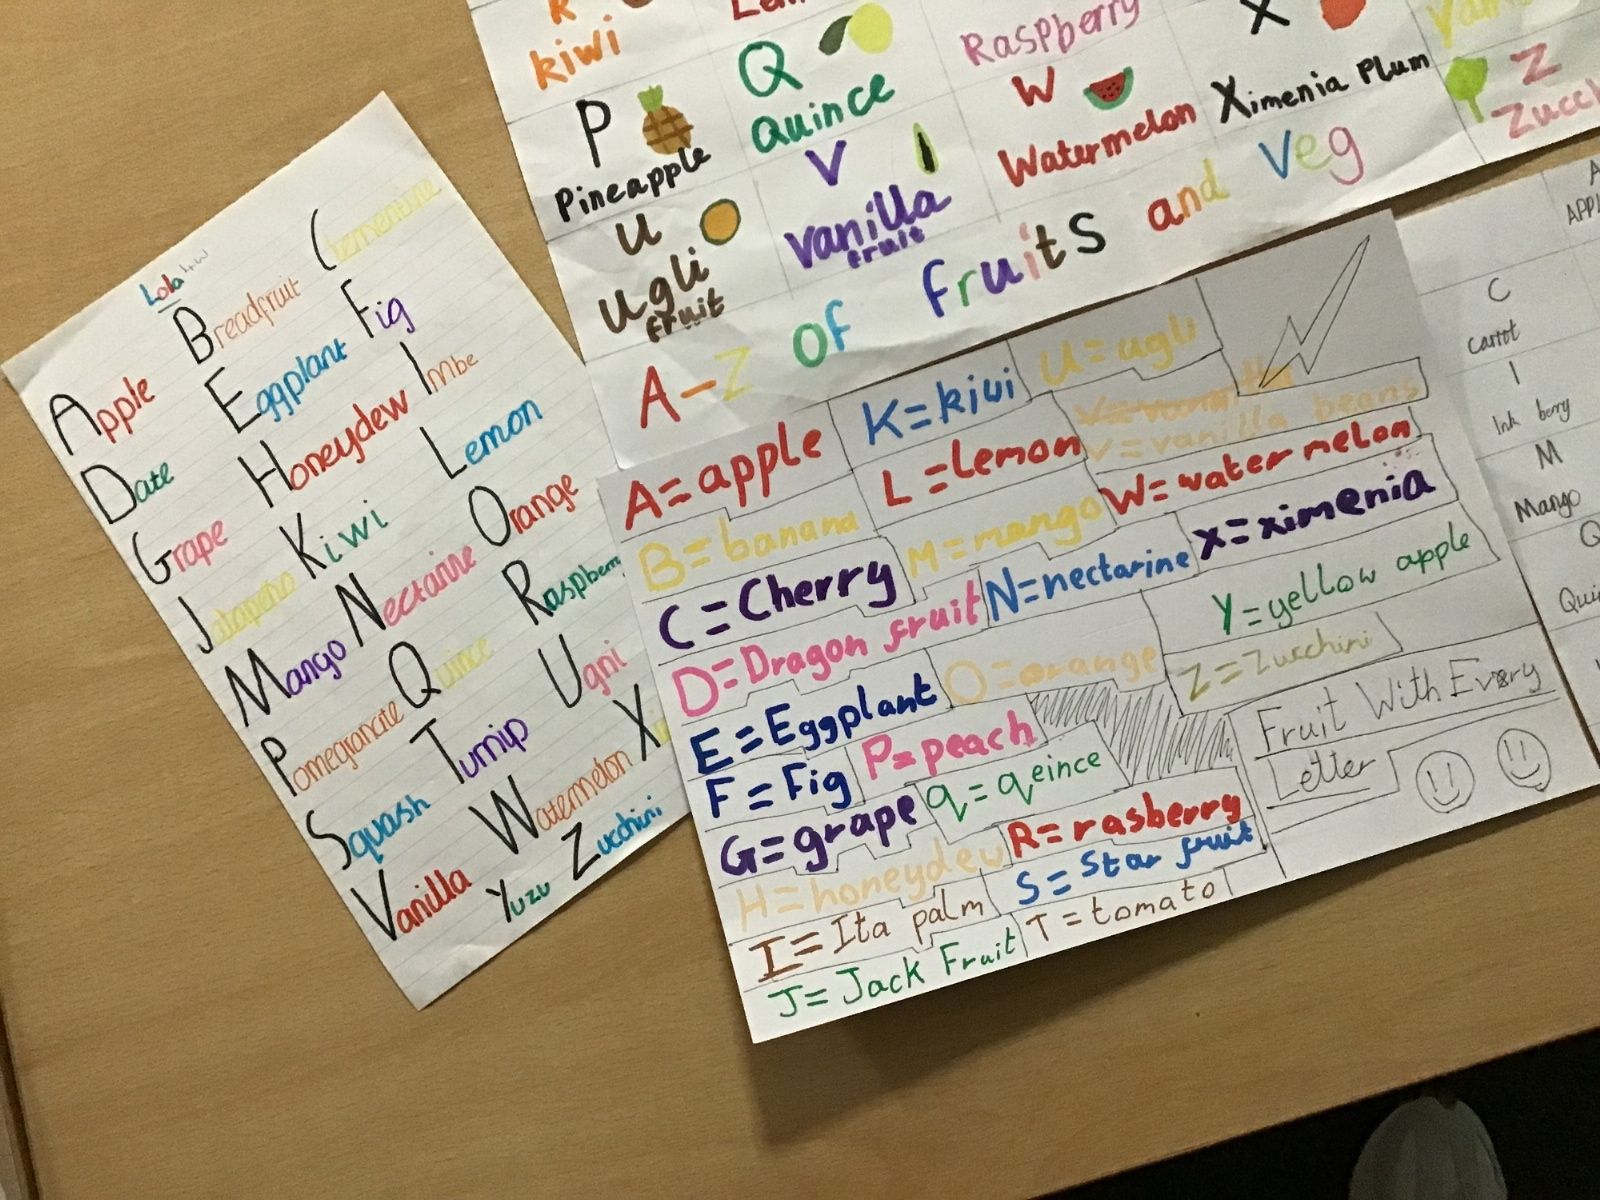 Lola
Apple
Breadfruit
Clementine
Date
Eggplant
Fig
Grape
Honeydew
Imbe
Jalapeño
Kiwi
Lemon
Mango
Nectarine
Orange
Pomegranate
Quince
Squash
Turnip
Ugni
Vanilla
Watermelon
Yuzu
Zucchini
kiwi
Raspberry
P
Pineapple
Q
Quince
W
Watermelon
X
Ximenia Plum
Z
U
Ugli
fruit
V
Vanilla
fruit
A-Z of fruits and veg
A=apple
B=banana
C=Cherry
D=Dragon fruit
E=Eggplant
F=Fig
G=grape
H=honeydew
I=Ita palm
J=Jack Fruit
K=kiwi
L=Lemon
M=mango
N=nectarine
O=orange
P=peach
q=qeince
R=rasberry
S=Star fruit
T=tomato
U=ugli
V=vanilla beans
W=water melon
X=ximenia
Y=yellow apple
Z=Zucchini
Fruit With Every
Letter
C
Carrot
I
Ink berry
M
Mango
Q